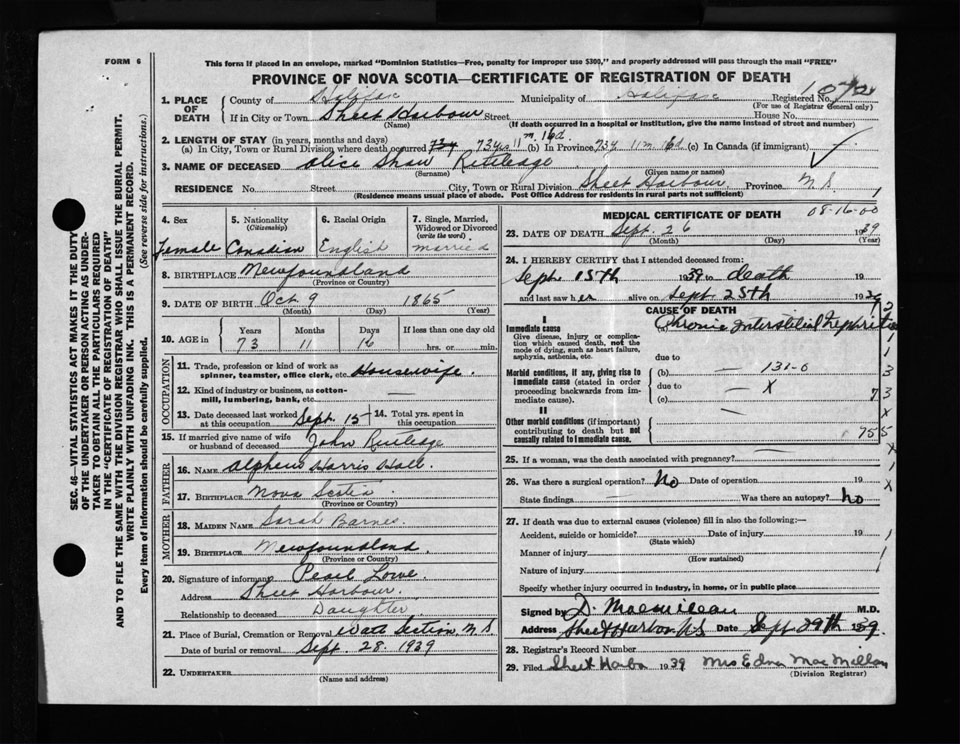 FORM 6
This form if placed in an envelope, marked "Dominion Statistics—Free, penalty for improper use $300," and properly addressed will pass through the mail "FREE"
PROVINCE OF NOVA SCOTIA—CERTIFICATE OF REGISTRATION OF DEATH
1. PLACE OF DEATH County of Halifax Municipality of Halifax Registered No.
(For use of Registrar General only)
If in City or Town Sheet Harbour Street House No.
(Name) (If death occurred in a hospital or institution, give the name instead of street and number)
2. LENGTH OF STAY (in years, months and days)
(a) In City, Town or Rural Division where death occurred 73 yrs 11 m. 16d. (b) In Province 73y 11m 16d (c) In Canada (if immigrant)
3. NAME OF DECEASED Alice Shaw Rutledge
(Surname) (Given name or names)
RESIDENCE No. Street City, Town or Rural Division Sheet Harbour Province N.S.
(Residence means usual place of abode. Post Office Address for residents in rural parts not sufficient)
SEC. 46—VITAL STATISTICS ACT MAKES IT THE DUTY
OF THE UNDERTAKER OR PERSON ACTING AS UNDER-
TAKER TO OBTAIN ALL THE PARTICULARS REQUIRED
IN THE "CERTIFICATE OF REGISTRATION OF DEATH"
AND TO FILE THE SAME WITH THE DIVISION REGISTRAR WHO SHALL ISSUE THE BURIAL PERMIT.
WRITE PLAINLY WITH UNFADING INK. THIS IS A PERMANENT RECORD.
Every item of information should be carefully supplied. (See reverse side for instructions.)
4. Sex
Female
5. Nationality
(Citizenship)
Canadian
6. Racial Origin
English
7. Single, Married, Widowed or Divorced
(write the word)
married
8. BIRTHPLACE Newfoundland
(Province or Country)
9. DATE OF BIRTH Oct 9 1865
(Month) (Day) (Year)
10. AGE in Years Months Days If less than one day
73 11 16 hrs. or min.
OCCUPATION
11. Trade, profession or kind of work as spinner, teamster, office clerk, etc. Housewife.
12. Kind of industry or business, as cotton-mill, lumbering, bank, etc. —
13. Date deceased last worked at this occupation Sept. 15
14. Total yrs. spent in this occupation
15. If married give name of wife or husband of deceased John Rutledge
FATHER
16. NAME Alpheus Harris Hall.
17. BIRTHPLACE Nova Scotia
(Province or Country)
MOTHER
18. MAIDEN NAME Sarah Barnes
19. BIRTHPLACE Newfoundland.
(Province or Country)
20. Signature of informant Pearl Lowe.
Address Sheet Harbour.
Relationship to deceased Daughter
21. Place of Burial, Cremation or Removal Watt Section, N.S.
Date of burial or removal Sept. 28. 1939
22. UNDERTAKER
(Name and address)
MEDICAL CERTIFICATE OF DEATH 08-16-00
23. DATE OF DEATH Sept. 26 1939
(Month) (Day) (Year)
24. I HEREBY CERTIFY that I attended deceased from:
Sept. 15th 1939 to death 19
and last saw her alive on Sept 25th 1939
CAUSE OF DEATH
I
Immediate cause
Give disease, injury or complication which caused death, not the mode of dying, such as heart failure, asphyxia, asthenia, etc.
(a) Chronic Interstitial Nephritis
due to
Morbid conditions, if any, giving rise to immediate cause (stated in order proceeding backwards from immediate).
(b) — 131-0
due to — X
(c) —
II
Other morbid conditions (if important) contributing to death but not causally related to immediate cause.
25. If a woman, was the death associated with pregnancy?
26. Was there a surgical operation? No Date of operation 19
State findings — Was there an autopsy? No
27. If death was due to external causes (violence) fill in also the following:—
Accident, suicide or homicide? Date of injury 19
(State which)
Manner of injury
(How sustained)
Nature of injury
Specify whether injury occurred in industry, in home, or in public place
Signed by D. Macmillan M.D.
Address Sheet Harbor N.S Date Sept 29th 1939.
28. Registrar's Record Number
29. Filed Sheet Harbor 1939 Mrs Edna MacMillan
(Division Registrar)